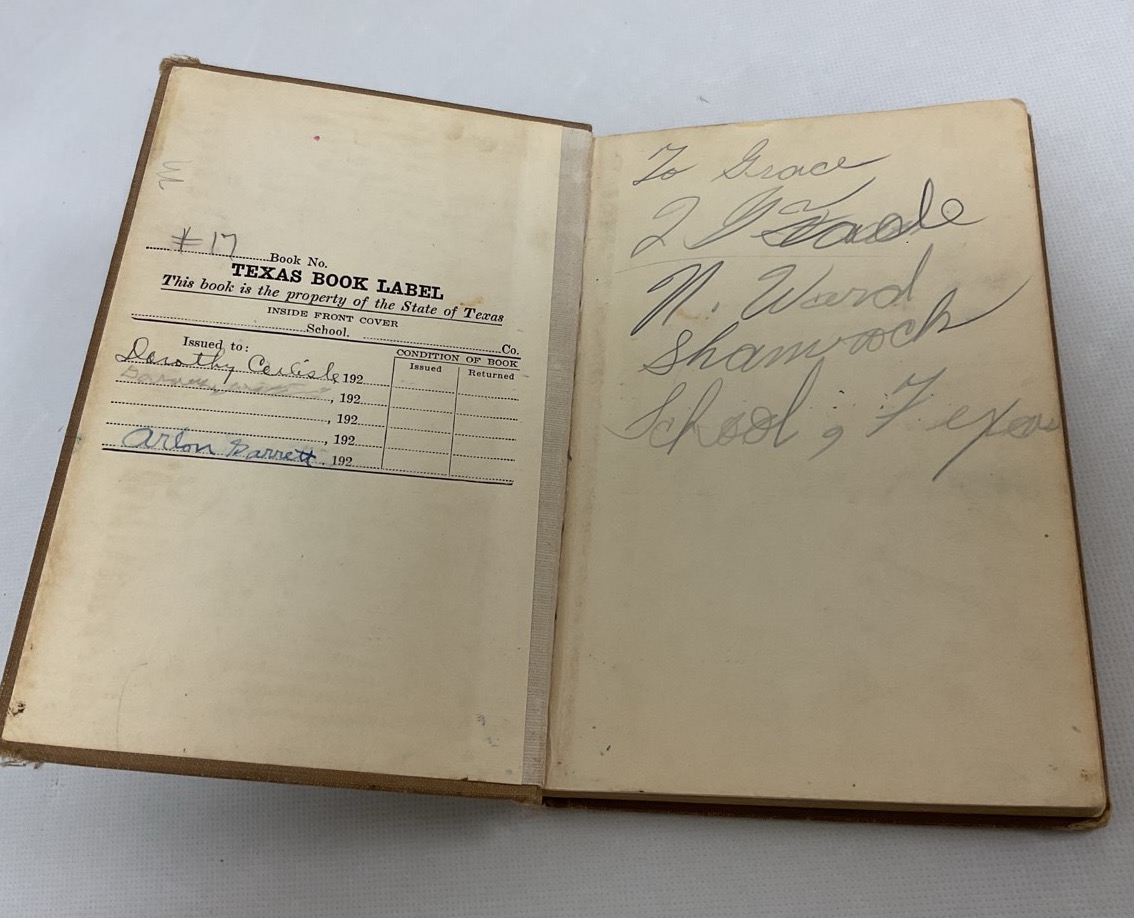 # 17
Book No.
TEXAS BOOK LABEL
This book is the property of the State of Texas
INSIDE FRONT COVER
School. Co.
Issued to:
CONDITION OF BOOK
Issued Returned
Dorothy Cerlisle 192
, 192
, 192
, 192
Arlon Garrett , 192
To Grace
N. Ward
Shamrock
School, Texas